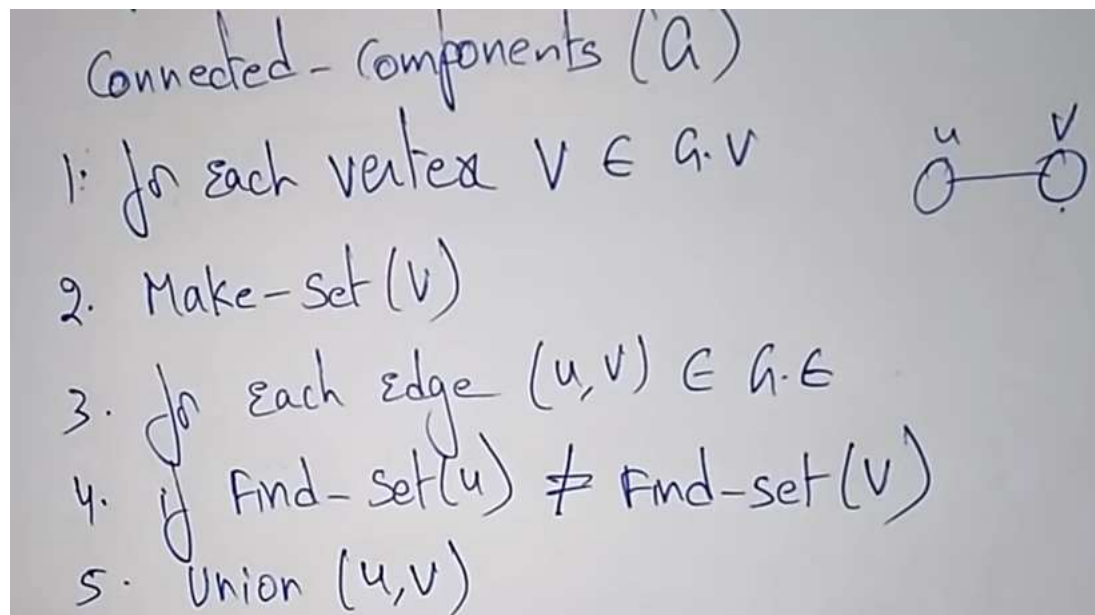 Connected-Components (G)
1: for each vertex V ∈ G.V
u V
2. Make-Set (V)
3. for each edge (u,v) ∈ G.E
4. if Find-Set(u) ≠ Find-set (V)
5. Union (u,v)